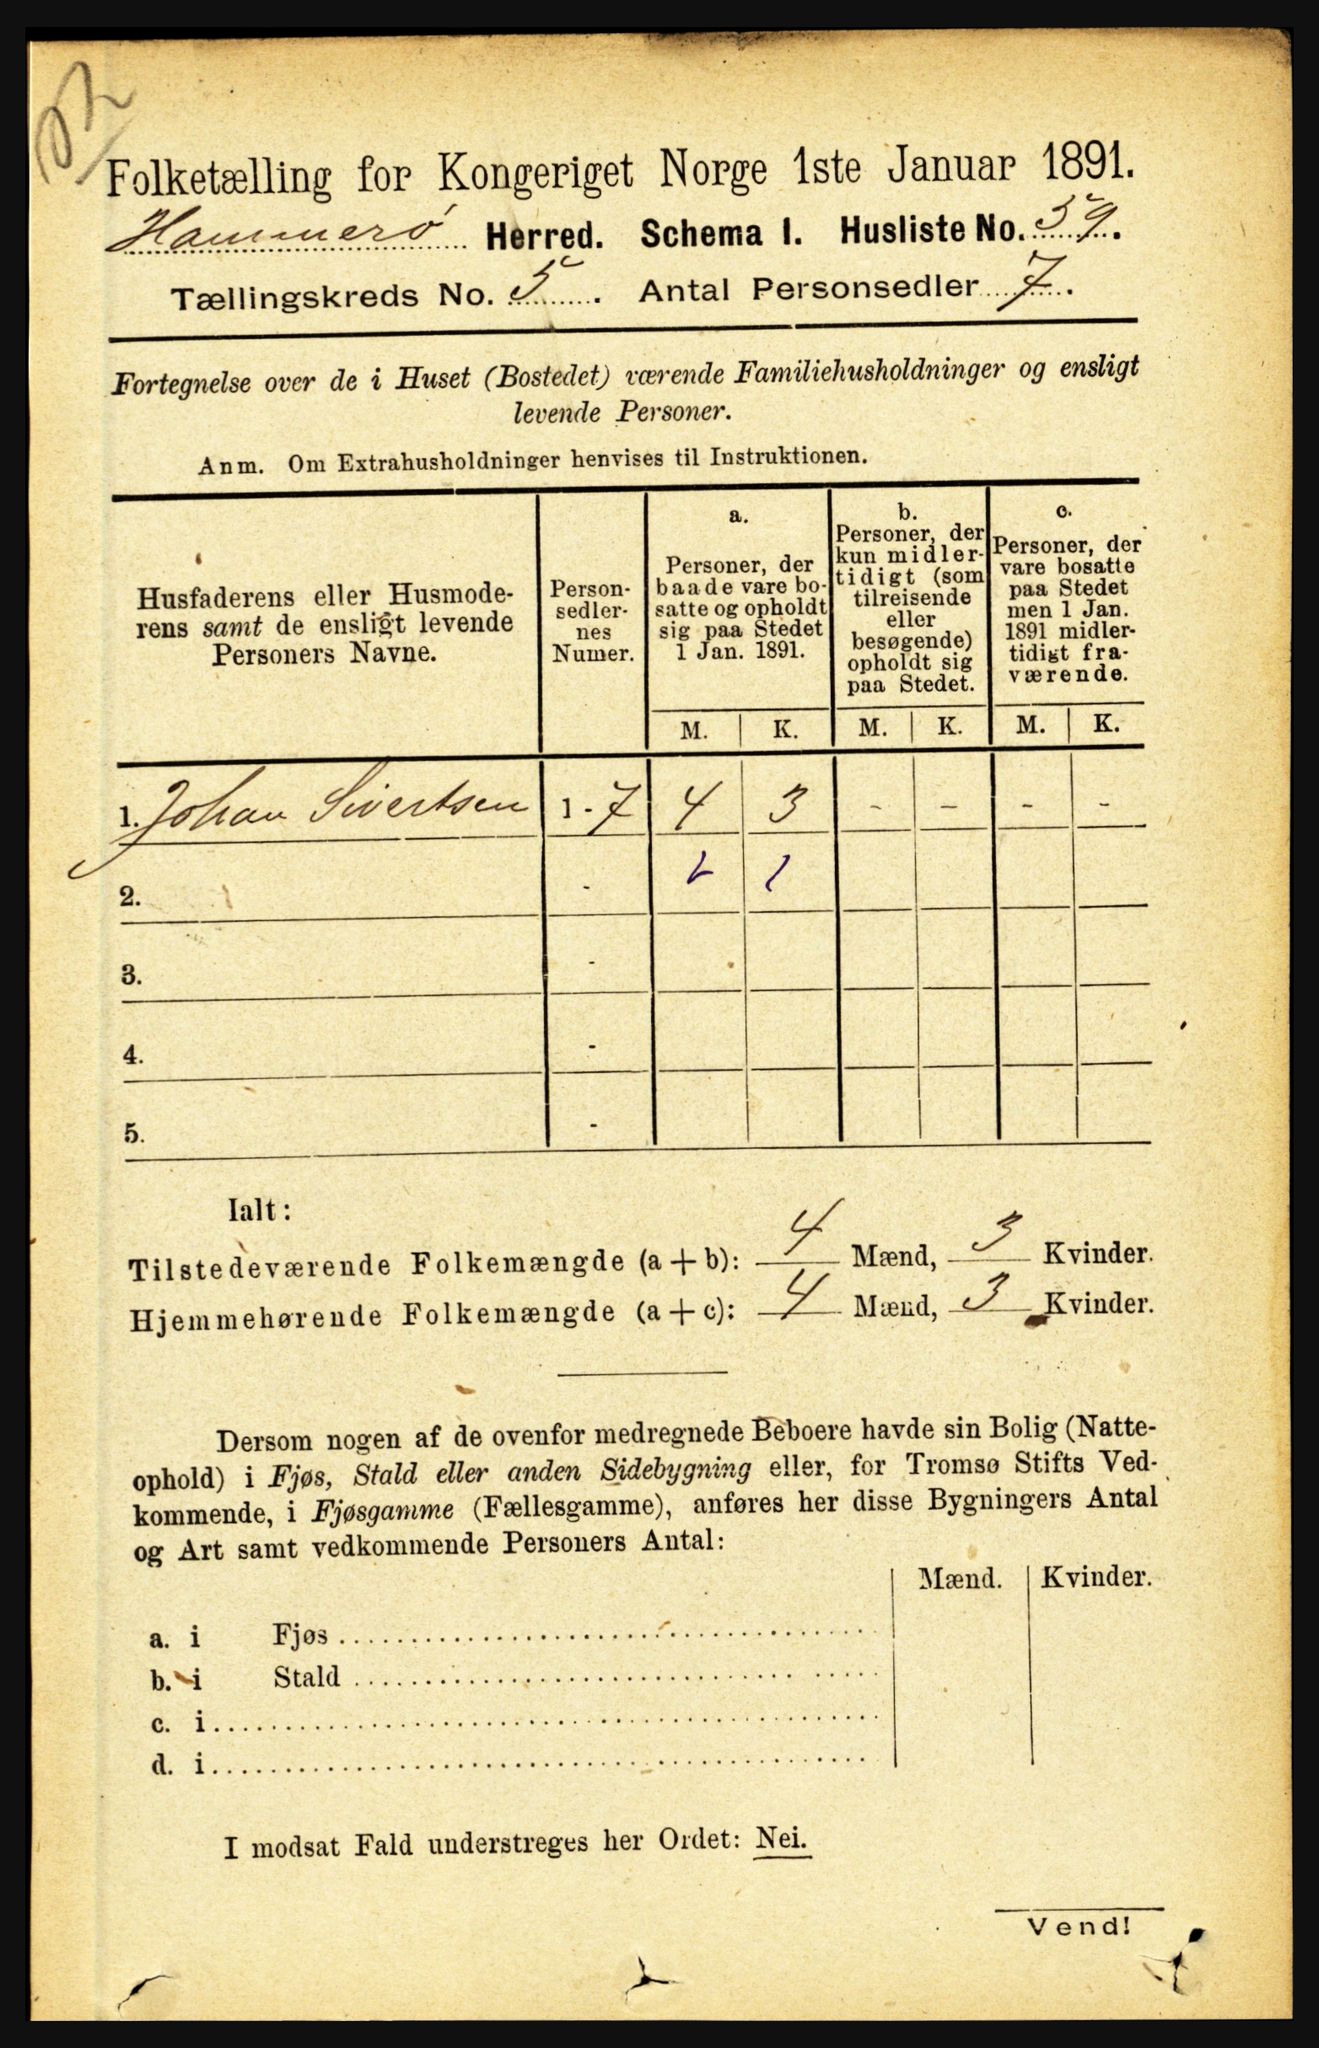 Folketælling for Kongeriget Norge 1ste Januar 1891.
Hammerø Herred. Schema I. Husliste No. 59.
Tællingskreds No. 5. Antal Personsedler 7.
Fortegnelse over de i Huset (Bostedet) værende Familiehusholdninger og ensligt
levende Personer.
Anm. Om Extrahusholdninger henvises til Instruktionen.
Husfaderens eller Husmode-
rens samt de ensligt levende
Personers Navne.
Person-
sedler-
nes
Numer.
a.
Personer, der
baade vare bo-
satte og opholdt
sig paa Stedet
1 Jan. 1891.
b.
Personer, der
kun midler-
tidigt (som
tilreisende
eller
besøgende)
opholdt sig
paa Stedet.
c.
Personer, der
vare bosatte
paa Stedet
men 1 Jan.
1891 midler-
tidigt fra-
værende.
M. K. M. K. M. K.
1. Johan Sivertsen 1 - 7 4 3 - - - -
2. - 1
3. -
4. -
5. -
Ialt:
Tilstedeværende Folkemængde (a + b): 4 Mænd, 3 Kvinder.
Hjemmehørende Folkemængde (a + c): 4 Mænd, 3 Kvinder.
Dersom nogen af de ovenfor medregnede Beboere havde sin Bolig (Natte-
ophold) i Fjøs, Stald eller anden Sidebygning eller, for Tromsø Stifts Ved-
kommende, i Fjøsgamme (Fællesgamme), anføres her disse Bygningers Antal
og Art samt vedkommende Personers Antal:
Mænd. Kvinder.
a. i Fjøs
b. i Stald
c. i
d. i
I modsat Fald understreges her Ordet: Nei.
Vend!